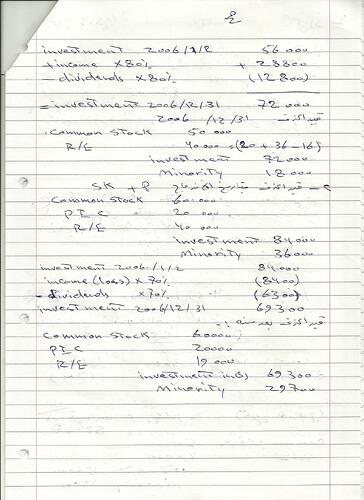 investment 2006/1/2 56 000
+ income x 80% + 28800
- dividends x 80% (12 800)
= investment 2006/12/31 72 000
2006/12/31
Common Stock 50 000
R/E 40 000 = (20 + 36 - 16)
investment 72 000
Minority 18 000
SK + P
Common Stock 60 000
PIC 20 000
R/E 40 000
investment 84 000
Minority 36 000
investment 2006/1/2 84 000
income (loss) x 70% (8400)
- dividends x 70% (6300)
investment 2006/12/31 69 300
Common Stock 60000
PIC 20000
R/E 19 000
investment in (S) 69 300
Minority 29700